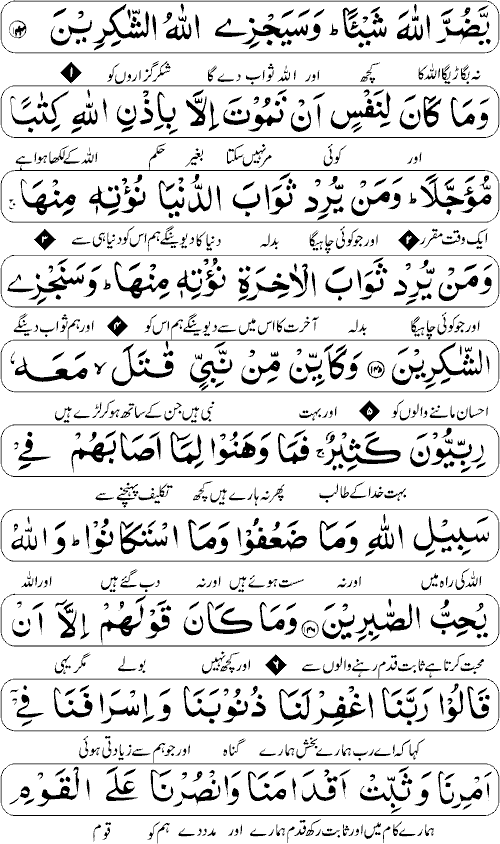 يَّضُرَّ اللّٰهَ شَيْـًٔا ؕ وَسَيَجْزِى اللّٰهُ الشّٰكِرِيْنَ ﴿۱۴۴﴾
نہ بگاڑیگا اللہ کا کچھ اور اللہ ثواب دے گا شکر گزاروں کو ۱
وَمَا كَانَ لِنَفْسٍ اَنْ تَمُوْتَ اِلَّا بِاِذْنِ اللّٰهِ كِتٰبًا
اور کوئی مر نہیں سکتا بغیر حکم اللہ کے لکھا ہوا ہے
مُّؤَجَّلًا ؕ وَمَنْ يُّرِدْ ثَوَابَ الدُّنْيَا نُؤْتِهٖ مِنْهَا ۚ
ایک وقت مقرر ۲ اور جو کوئی چاہیگا بدلہ دنیا کا دیوینگے ہم اس کو دنیا ہی سے ۳
وَمَنْ يُّرِدْ ثَوَابَ الْاٰخِرَةِ نُؤْتِهٖ مِنْهَا ؕ وَسَنَجْزِى
اور جو کوئی چاہیگا بدلہ آخرت کا اس میں سے دیوینگے ہم اس کو ۴ اور ہم ثواب دینگے
الشّٰكِرِيْنَ ﴿۱۴۵﴾ وَكَاَيِّنْ مِّنْ نَّبِىٍّ قٰتَلَ ۙ مَعَهٗ
احسان ماننے والوں کو ۵ اور بہت نبی ہیں جن کے ساتھ ہو کر لڑے ہیں
رِبِّيُّوْنَ كَثِيْرٌ ۚ فَمَا وَهَنُوْا لِمَآ اَصَابَهُمْ فِىْ
بہت خدا کے طالب پھر نہ ہارے ہیں کچھ تکلیف پہنچنے سے
سَبِيْلِ اللّٰهِ وَمَا ضَعُفُوْا وَمَا اسْتَكَانُوْا ؕ وَاللّٰهُ
اللہ کی راہ میں اور نہ سست ہوئے ہیں اور نہ دب گئے ہیں اور اللہ
يُحِبُّ الصّٰبِرِيْنَ ﴿۱۴۶﴾ وَمَا كَانَ قَوْلَهُمْ اِلَّاۤ اَنْ
محبت کرتا ہے ثابت قدم رہنے والوں سے ۶ اور کچھ نہیں بولے مگر یہی
قَالُوْا رَبَّنَا اغْفِرْ لَنَا ذُنُوْبَنَا وَاِسْرَافَنَا فِىْۤ
کہا کہ اے رب ہمارے بخش ہمارے گناہ اور جو ہم سے زیادتی ہوئی
اَمْرِنَا وَثَبِّتْ اَقْدَامَنَا وَانْصُرْنَا عَلَى الْقَوْمِ
ہمارے کام میں اور ثابت رکھ قدم ہمارے اور مدد دے ہم کو قوم